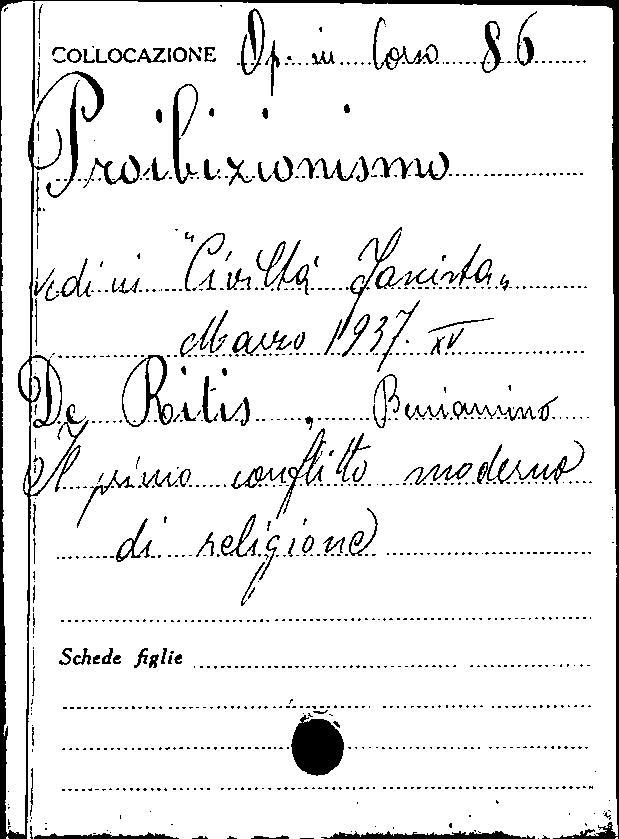 COLLOCAZIONE Op. in Corso 86
Proibizionismo
vedi in "Civiltà Fascista„
Marzo 1937. XV
De Ritis, Beniamino
Il primo conflitto moderno
di religione
Schede figlie